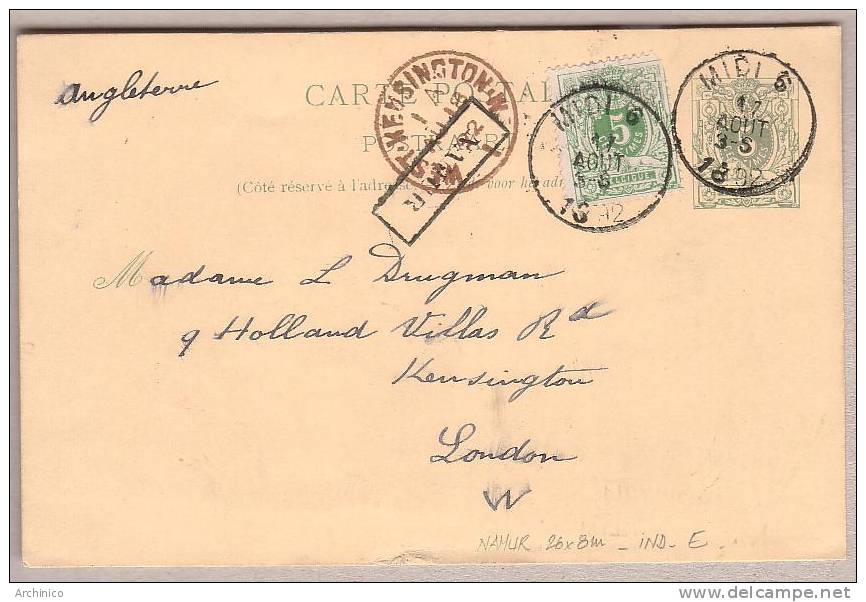 Angleterre
CARTE POSTAL
(Côté réservé à l'adresse voor het adr
WEST KENSINGTON.W
NAMUR
MIDI 6
17
AOUT
3-S
1892
5
BELGIQUE
MIDI 6
17
AOUT
3-S
1892
Madame L Drugman
9 Holland Villas Rd
Kensington
London
W
NAMUR 26x8m - IND. E
Archinico
www.delcampe.net